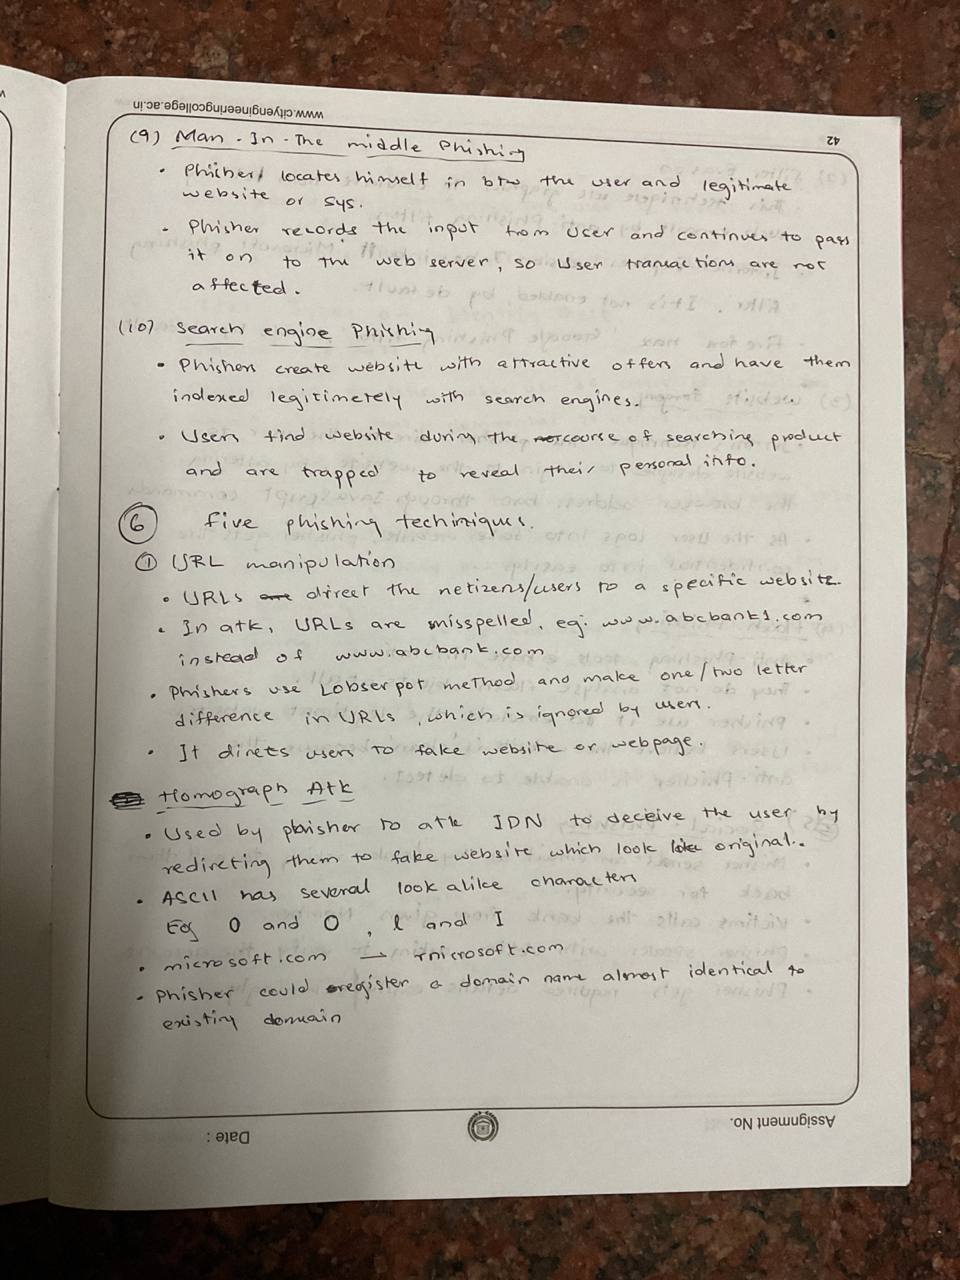 www.cityengineeringcollege.ac.in
42
(9) Man - In - The middle Phishing
• Phisher locates himself in btw the user and legitimate
website or sys.
• Phisher records the input from user and continues to pass
it on to the web server, so user transactions are not
affected.
(10) Search engine Phishing
• Phishers create website with attractive offers and have them
indexed legitimetely with search engines.
• Users find website during the course of searching product
and are trapped to reveal their personal info.
6 five phishing techiniques.
① URL manipulation
• URLs direct the netizens/users to a specific website.
• In atk, URLs are misspelled, eg: www.abcbank1.com
instead of www.abcbank.com
• Phishers use Lobserpot method and make one/two letter
difference in URLs, which is ignored by users.
• It directs users to fake website or webpage.
Homograph Atk
• Used by phisher to atk IDN to deceive the user by
redircting them to fake website which look like original.
• ASCII has several look alike characters
Eg 0 and O , l and I
• microsoft.com → rnicrosoft.com
• Phisher could register a domain name almost identical to
existing domain
Assignment No.
Date :